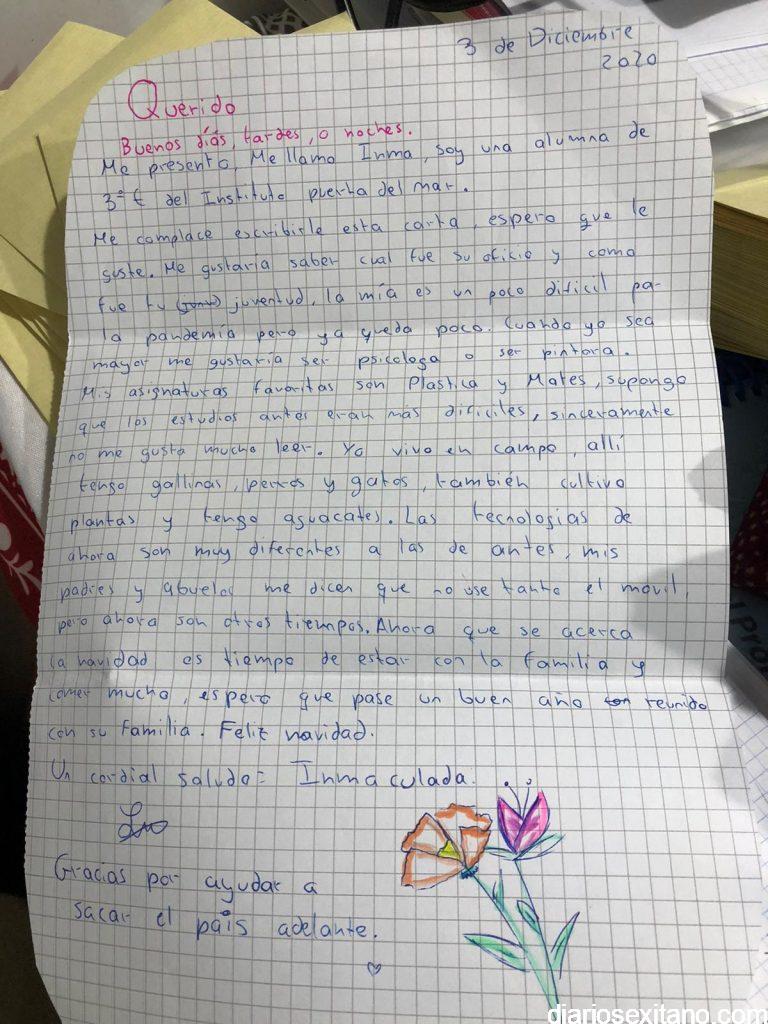 3 de Diciembre
2020
Querido
Buenos días, tardes, o noches.
Me presento, Me llamo Inma, soy una alumna de
3º E del Instituto puerta del mar.
Me complace escribirle esta carta, espero que le
guste. Me gustaría saber cual fue su oficio y como
fue tu juventud, la mía es un poco dificil pa-
la pandemia pero ya queda poco. Cuando yo sea
mayor me gustaria ser psicologa o ser pintora.
Mis asignaturas favoritas son Plastica y Mates, supongo
que los estudios antes eran más dificiles, sinceramente
no me gusta mucho leer. Yo vivo en campo, allí
tengo gallinas, perros y gatos, también cultivo
plantas y tengo aguacates. Las tecnologias de
ahora son muy diferentes a las de antes, mis
padres y abuelos me dicen que no use tanto el movil,
pero ahora son otros tiempos. Ahora que se acerca
la navidad es tiempo de estar con la familia y
comer mucho, espero que pase un buen año reunido
con su familia. Feliz navidad.
Un cordial saludo= Inmaculada.
Gracias por ayudar a
sacar el país adelante.
diariosexitano.com